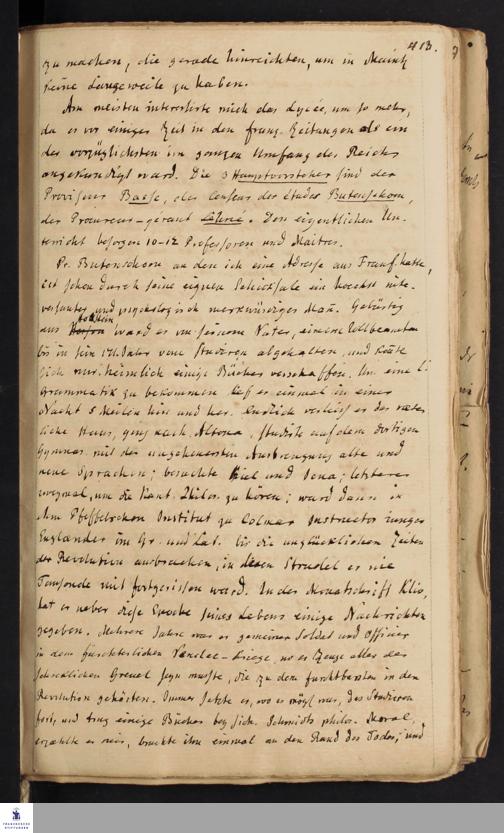 413.
zu machen, die gerade hinreichten, um in Mainz
keine Langeweile zu haben.
Am meisten interessirte mich das Lycée, um so mehr,
da es vor einiger Zeit in den franz. Zeitungen als ein
der vorzüglichsten im ganzen Umfang des Reichs
angekündigt ward. Die 3 Hauptvorsteher sind der
Proviseur Basse, der Censeur der études Butenschoen,
der Procureur-gerant. Den eigentlichen Un-
terricht besorgen 10-12 Professoren und Maitres.
Pr. Butenschoen an den ich eine Adresse aus Frankf. hatte,
ist schon durch seine eignen Schicksale ein hoechst inte-
ressanter und psychologisch merkwürdiger Man. Gebürtig
aus Holstein ward er von seinem Vater, einem Zollbeamten
bis in sein 17. Jahr vom Studiren abgehalten, und konte
sich nur heimlich einige Bücher verschaffen. Um eine L.
Grammatik zu bekommen lief er einmal in einer
Nacht 5 Meilen hin und her. Endlich verliess er das väter-
liche Haus, ging nach Altona, studirte auf dem dortigen
Gymnas. mit der ungeheuersten Anstrengung alte und
neue Sprachen; besuchte Kiel und Jena; letzteres
zweymal, um die Kant. Philos. zu hören; ward dann in
dem Pfeffelschen Institut zu Colmar Instructor junger
Englander im Gr. und Lat. bis die unglücklichen Zeiten
der Revolution ausbrachen, in deren Strudel er wie
Tausende mit fortgerissen ward. In der Monatschrift Klio,
hat er ueber diese Epoche seines Lebens einige Nachrichten
gegeben. Mehrere Jahre war er gemeiner Soldat und Officier
in dem fürchterlichen Vendee-Kriege, wo er Zeuge aller der
schrecklichen Greuel seyn musste, die zu den furchtbarsten in der
Revolution gehörten. Immer setzte er, wo es mögl. war, das Studiren
fort, und trug einige Bücher bey sich. Schmidts philos. Moral,
erzaehlte er mir, brachte ihn einmal an den Rand des Todes, und
FRANCKESCHE
STIFTUNGEN